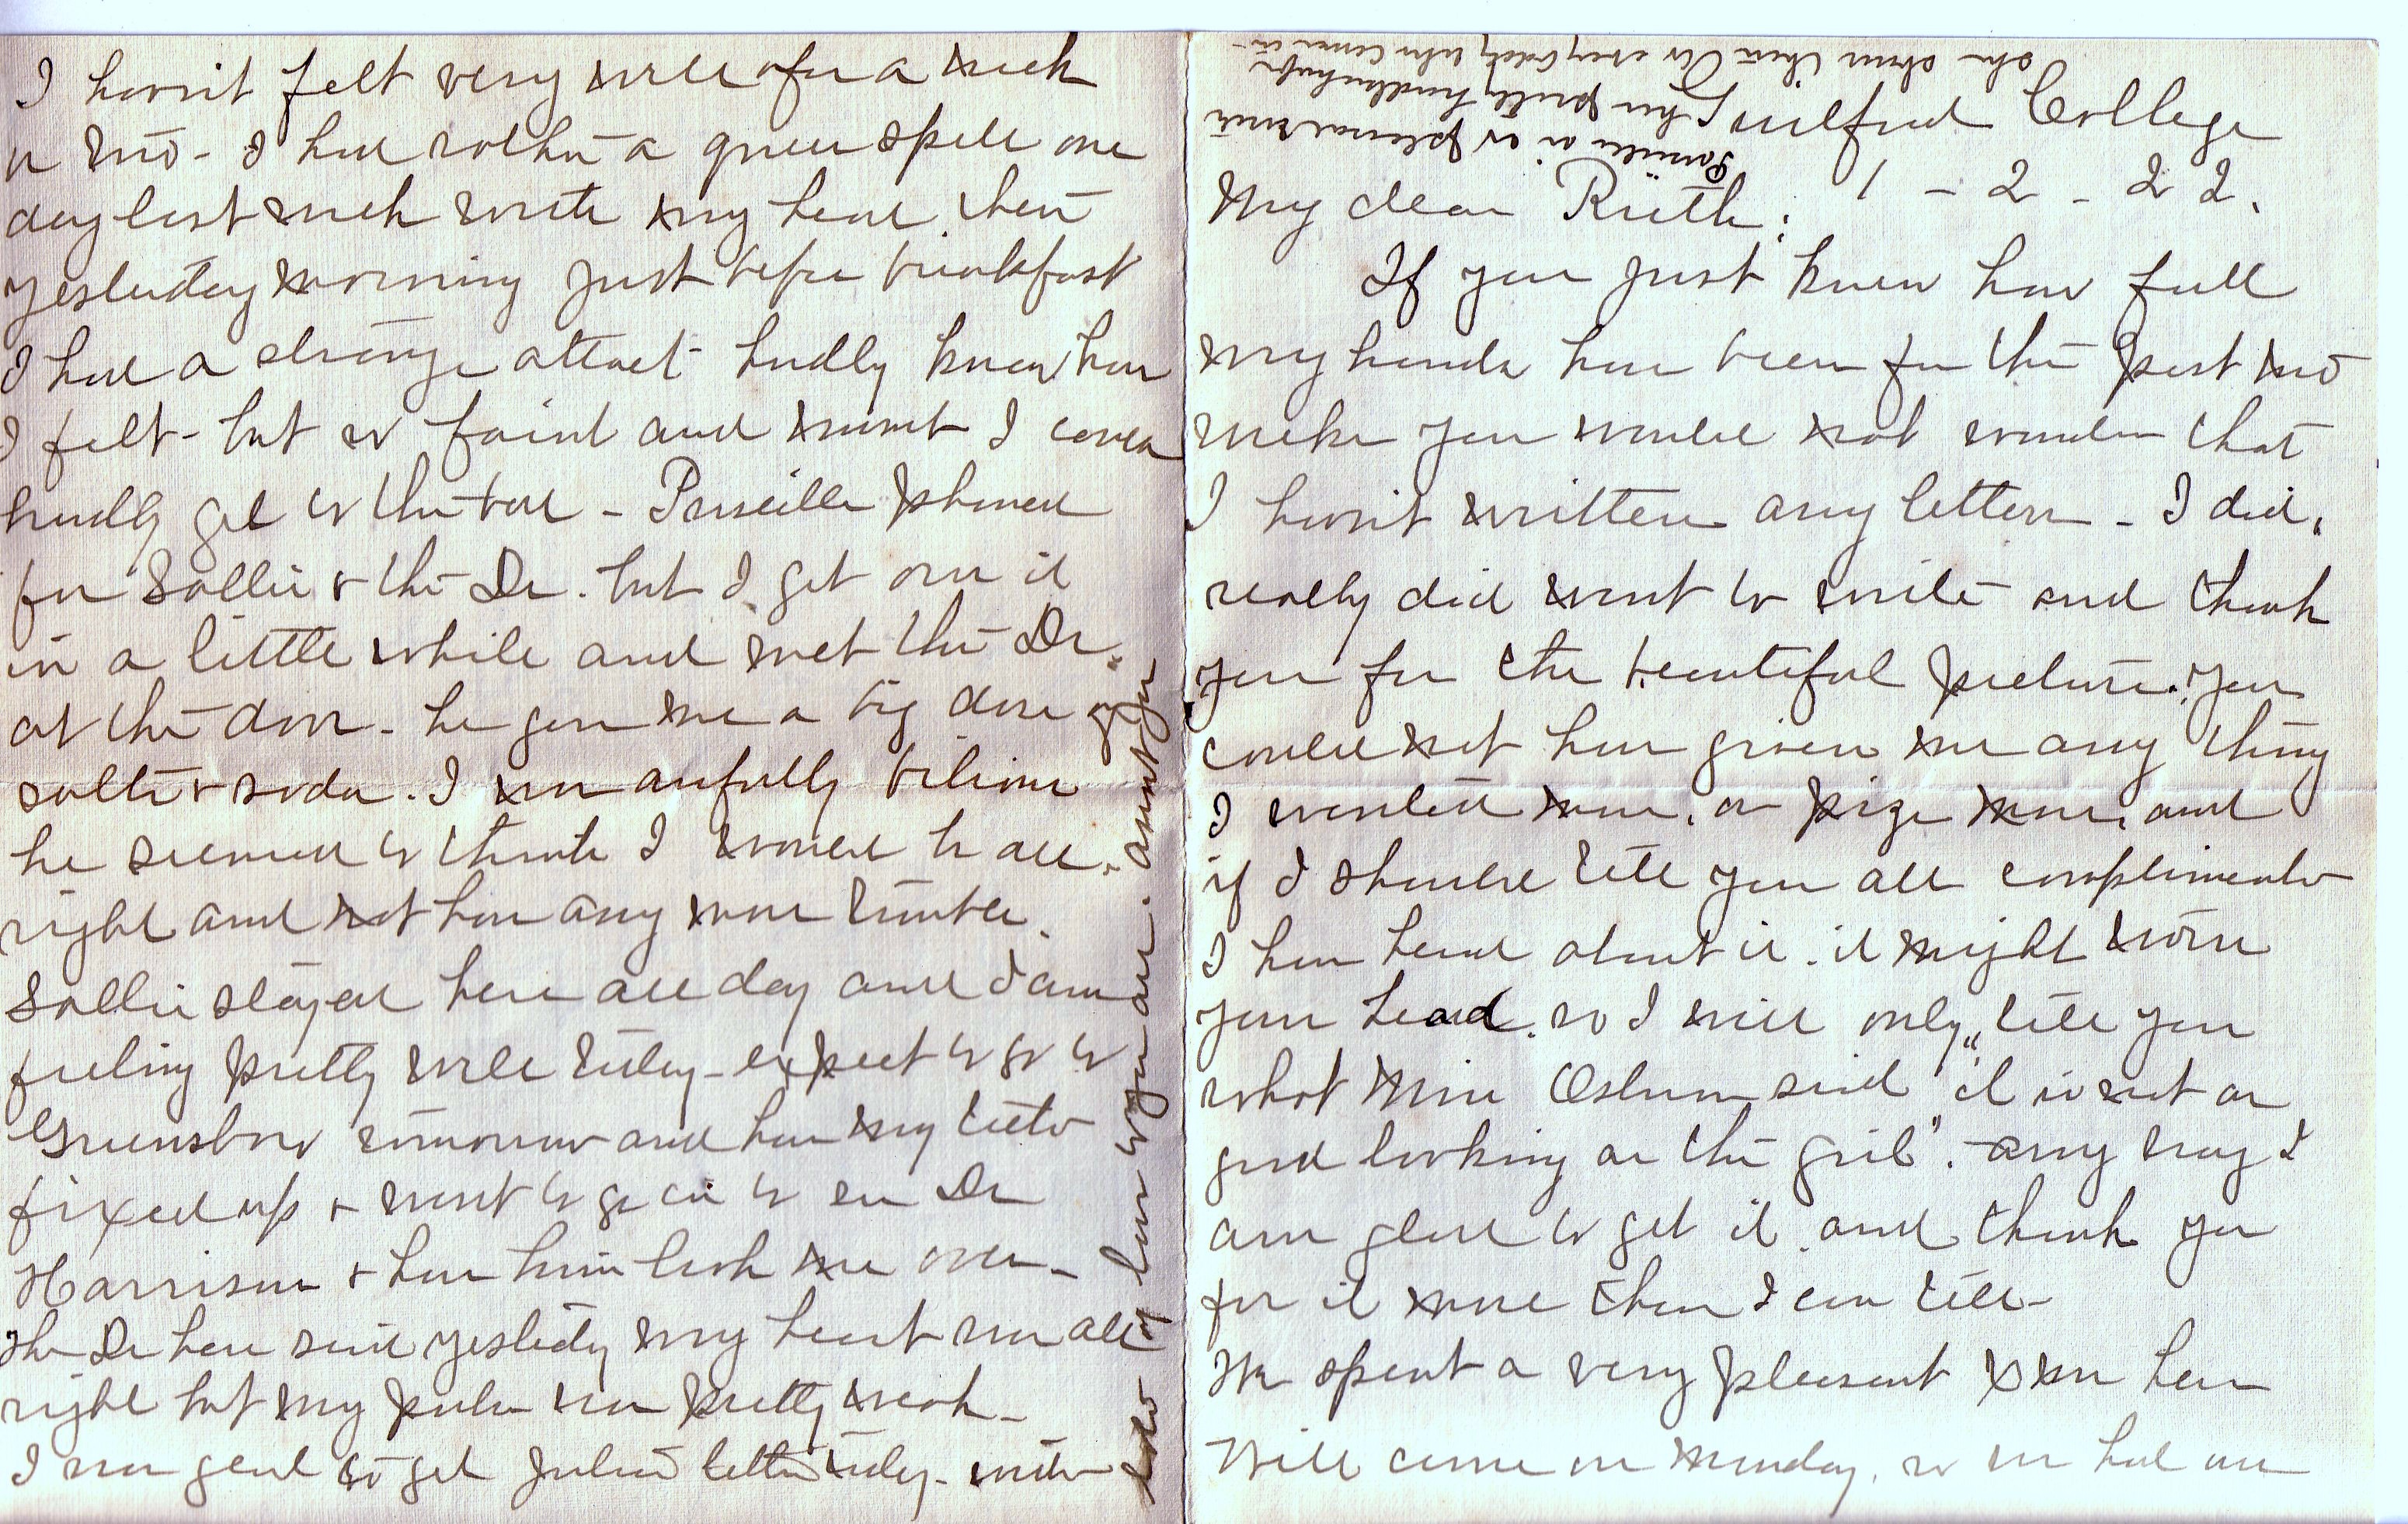 Guilford College
1 - 2 - 22.
My dear Ruth:
If you just knew how full
my hands have been for the past two
weeks you would not wonder that
I havn't written any letters - I did,
really did want to write and thank
you for the beautiful picture. You
could not have given me any thing
I wanted more, or prize more, and
if I should tell you all compliments
I have heard about it. it might turn
your head. so I will only tell you
what Miss Osborn said "it is not as
good looking as the girl". any way I
am glad to get it. and thank you
for it more than I can tell -
We spent a very pleasant Xmas here
Will came on Monday, so we had our
I havn't felt very well for a week
or two - I had rather a queer spell one
day last week with my head, then
yesterday morning just before breakfast
I had a strange attact - hardly know how
I felt - but so faint and I could
hardly get to the bed - Priscilla phoned
for Sallie & the Dr. but I got over it
in a little while and met the Dr.
at the door - he gave me a big dose of
salts & soda. I was awfully bilious
he seemed to think I would be all
right and not have any more trouble.
Sallie stayed here all day and I am
feeling pretty well today - expect to go to
Greensboro tomorrow and have my teeth
fixed up & want to go in to see Dr
Harrison & have him look me over -
The Dr here said yesterday my heart was all
right but my pulse was pretty weak -
I was glad to get Julia's letter today - with
lots of love to you all. aunt
Priscilla is so pleased with
her pretty handkerchief
she shows them to every body who comes in -